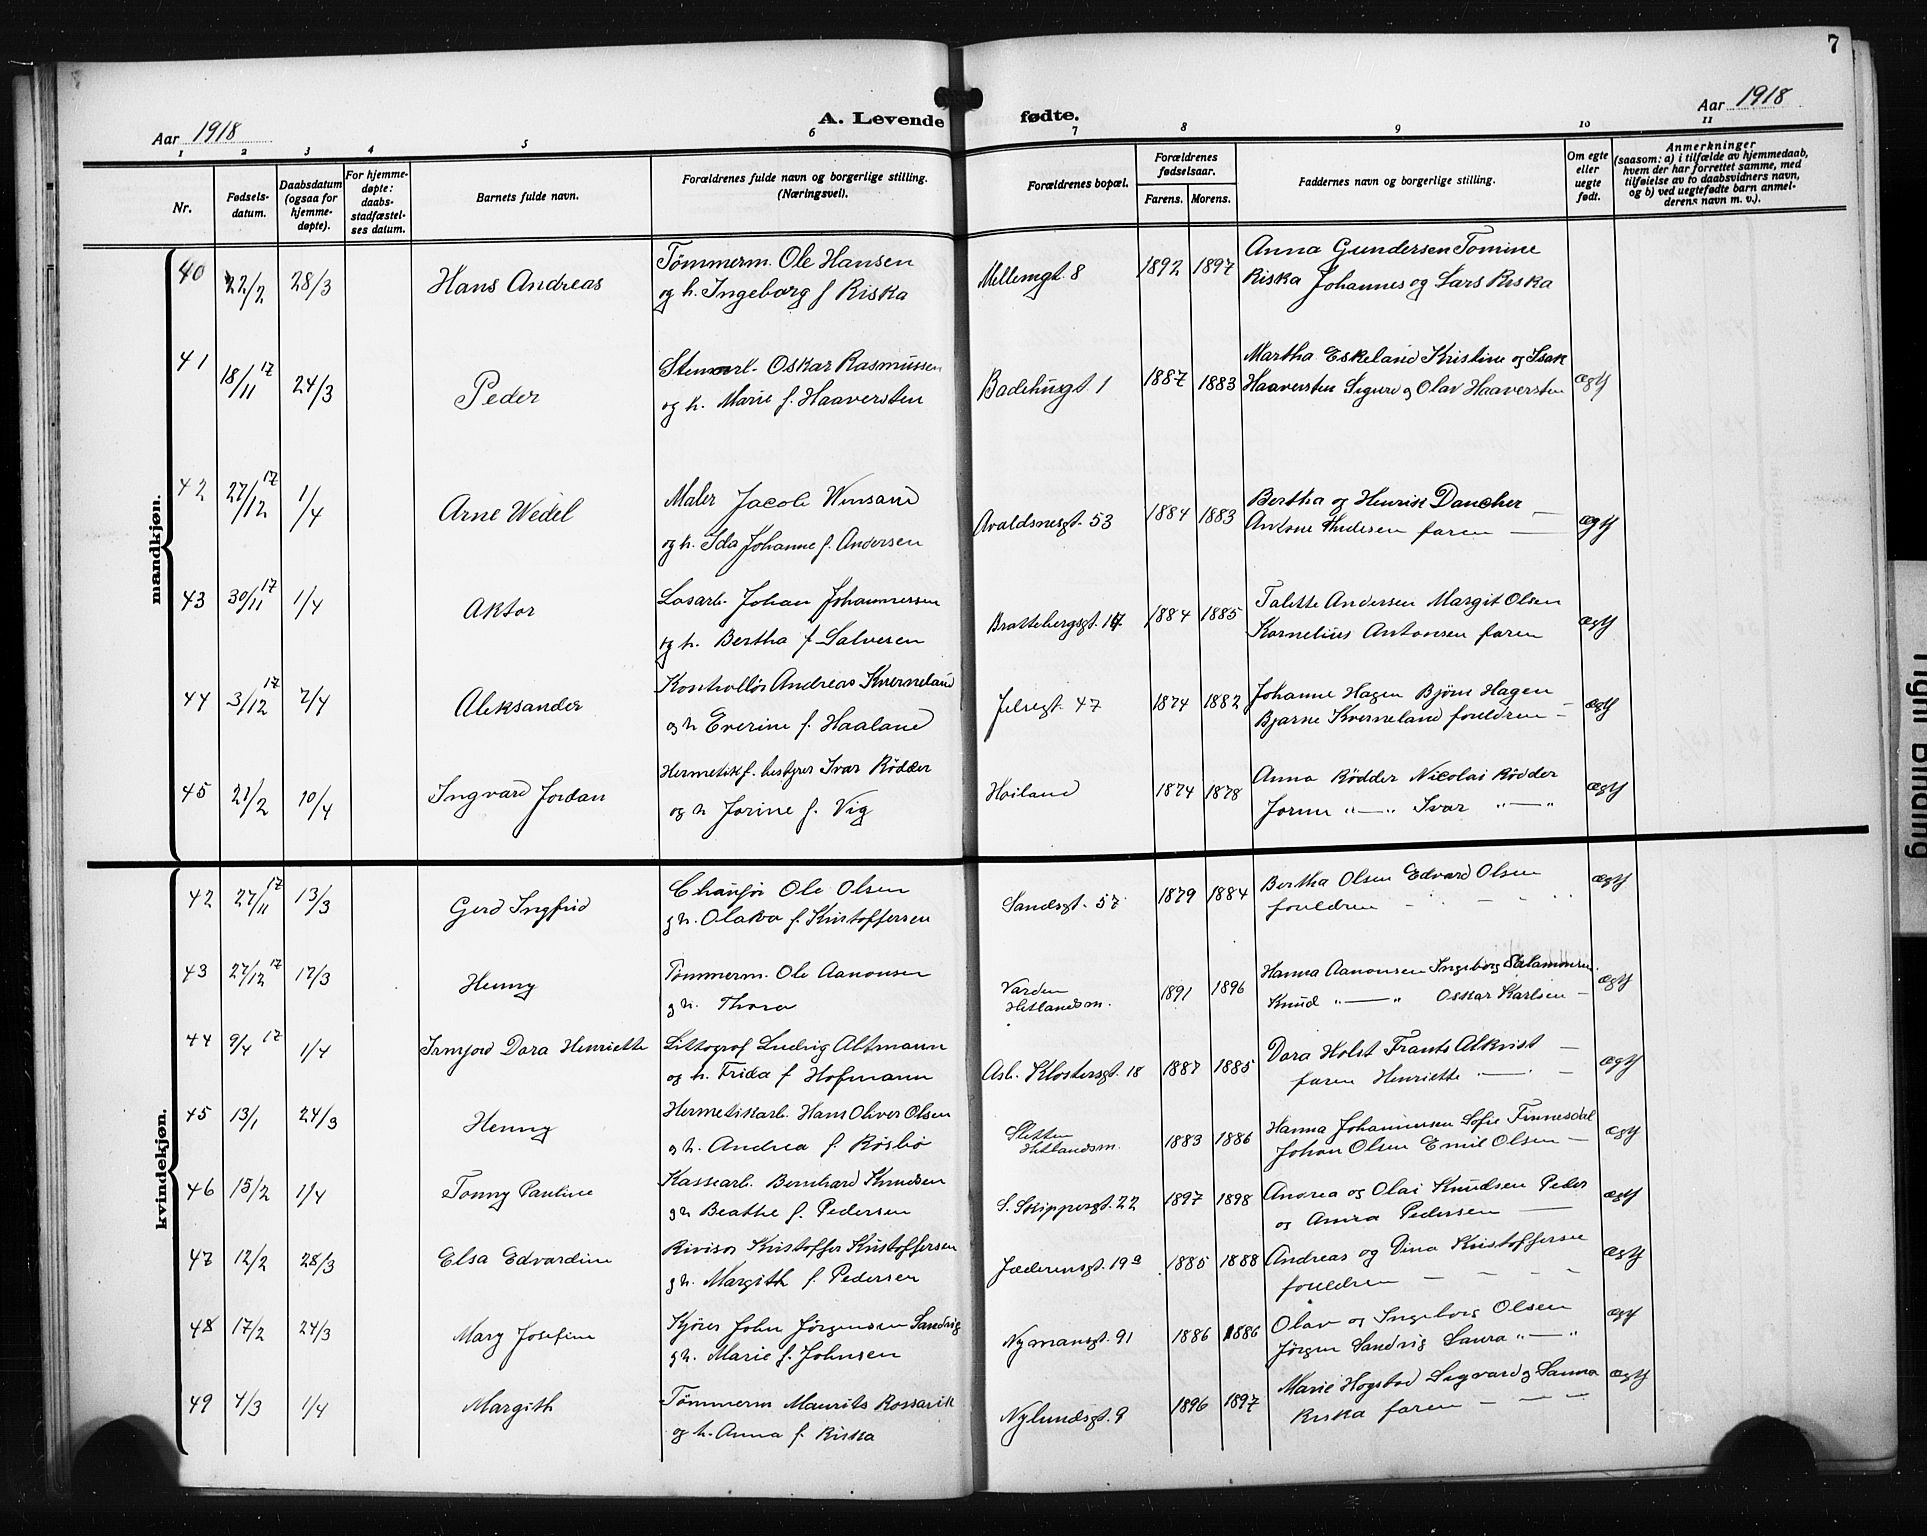 7
Aar 1918
A. Levende fødte.
Aar 1918
1 2 3 4 5 6 7 8 9 10 11
Nr.
Fødsels-
datum.
Daabsdatum
(ogsaa for
hjemme-
døpte).
For hjemme-
døpte:
daabs-
stadfæstel-
ses datum.
Barnets fulde navn.
Forældrenes fulde navn og borgerlige stilling.
(Næringsvei).
Forældrenes bopæl.
Forældrenes
fødselsaar.
Farens. Morens.
Faddernes navn og borgerlige stilling.
Om egte
eller
uegte
født.
Anmerkninger
(saasom: a) i tilfælde av hjemmedaab,
hvem der har forrettet samme, med
tilføielse av to daabsvidners navn,
og b) ved uegtefødte barn anmel-
derens navn m. v.).
mandkjøn.
40 22/2 28/3 Hans Andreas Tömmerm. Ole Hansen
og h. Ingeborg f Riska
Mellemgt 8 1892 1897 Anna Gundersen Tomine
Riska Johannes og Lars Riska
41 18/11 17 24/3 Peder Stenarb. Oskar Rasmussen
og h. Marie f. Haaversten
Badehusgt 1 1887 1883 Martha Eskeland Kristine og Isak
Haaversten Sigurd og Olav Haaversten ægt
42 27/12 17 1/4 Arne Wedel Maler Jacob
og h. Ida Johanne f. Andersen
Avaldsnesgt. 53 1884 1883 Bertha og Henrik Dancher —
Antone Andersen faren — ægt
43 30/11 17 1/4 Aktor Losarb. Johan Johannersen
og h. Bertha f Salvesen
Brattebergsgt. 1884 1885 Talette Andersen Margit Olsen
Kornelius Antonsen faren ægt
44 3/12 17 2/4 Aleksander Kontrollör Andreas Kverneland
og h Everine f. Haaland
Jelsegt. 47 1874 1882 Johanne Hagen Björn Hagen
Bjarne Kverneland foreldren — ægt
45 21/2 10/4 Ingvard Jordan Hermetikf. bestyrer Ivar Rödder
og h Jorine f. Vig
Hoiland 1874 1878 Anna Rödder Nicolai Rödder
Jorine " — " Ivar " — " ægt
kvindekjøn.
42 27/11 17 13/3 Gerd Ingfrid Chauför Ole Olsen
g h. Olava f. Kristoffersen
Sandsgt. 57 1879 1884 Bertha Olsen Edvard Olsen
foreldren ægt
43 27/12 17 17/3 Henny Tömmerm. Ole Aanonsen
g h. Thora
Varden
Hetlandsm. 1891 1896 Hanna Aanonsen Ingeborg Salamonsen
Knud " — " Oskar Karlsen — ægt
44 9/4 17 1/4 Irmjord Dora Henriette Littograf Ludvig Altmann
og h. Frida f Hofmann
Asb. Klostersgt. 18 1887 1885 Dora Holst Frants Alkvist —
faren Henriette — ægt
45 13/1 24/3 Henny Hermetikarb. Hans Oliver Olsen
g h. Andrea f Rösbö
Sletten
Hetlandsm. 1883 1886 Hanna Johannesen Sofie Finnesdal
Johan Olsen Emil Olsen — ægt
46 15/2 1/4 Tonny Pauline Kassearb. Bernhard Knudsen
g h Beathe f. Pedersen
S. Skippergt. 22 1897 1898 Andrea og Olai Knudsen Peder
og Anna Pedersen — ægt
47 12/2 28/3 Elsa Edvardine Rivisor Kristoffer Kristoffersen
g h. Margith f. Pedersen
Jæderensgt. 19a 1885 1888 Andreas og Dina Kristoffersen
foreldren — ægt
48 17/2 24/3 Mary Josefine Kjörer John Jörgensen Sandvig
g h. Marie f. Johnsen
Nymansgt. 91 1886 1886 Olav og Ingeborg Olsen
Jörgen Sandvig Laura " — " ægt
49 4/3 1/4 Margith Tömmerm Maurits Rossavik
og h. Anna f. Riska
Nylundsgt. 9 1896 1897 Marie Hogstad Sigvard og Sanna
Riska faren — ægt